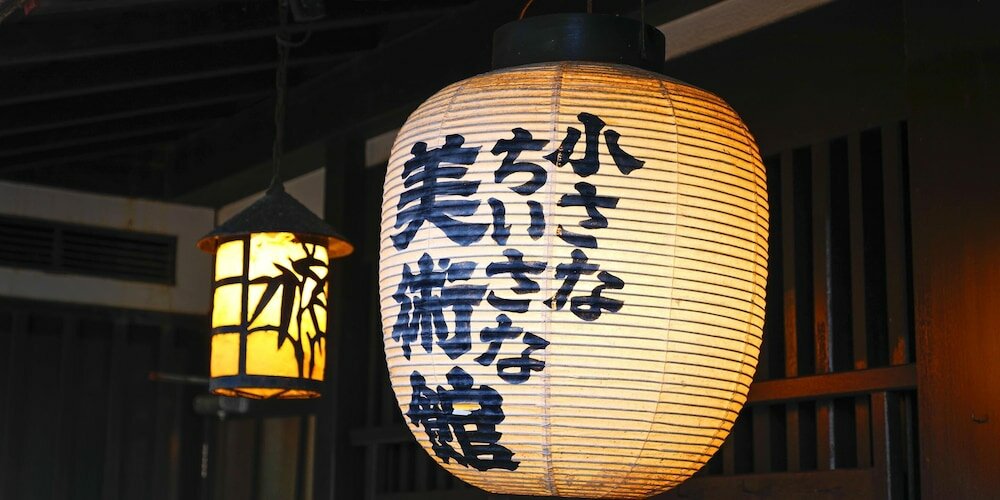 小さな
ちいさな
美術館